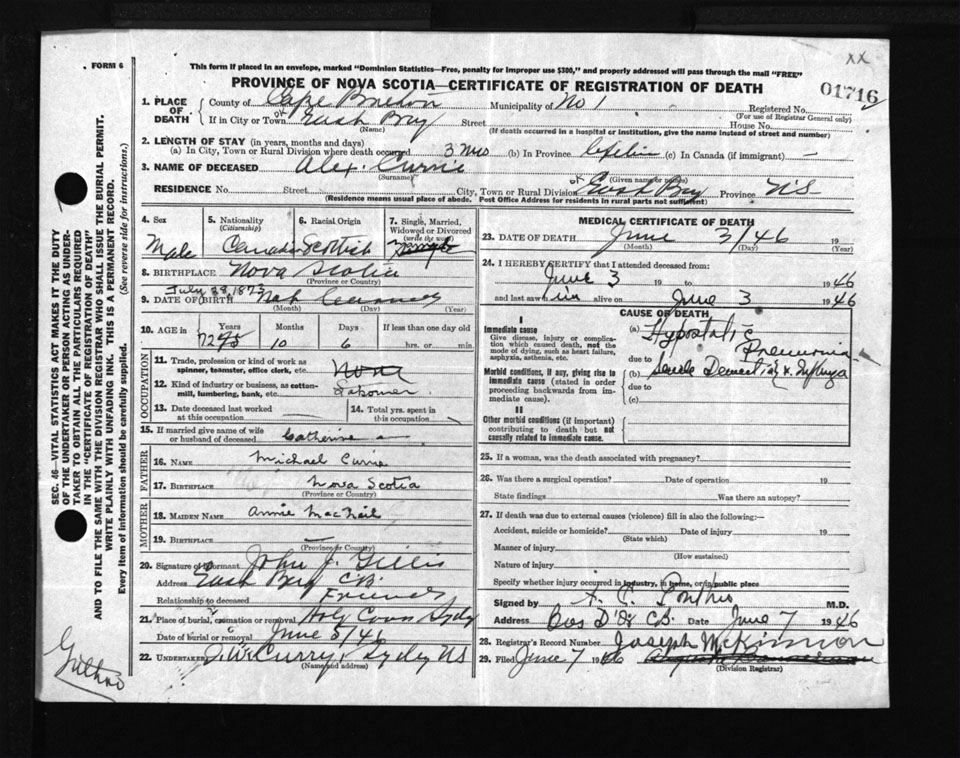 FORM 6
XX
This form if placed in an envelope, marked "Dominion Statistics—Free, penalty for improper use $300," and properly addressed will pass through the mail "FREE"
PROVINCE OF NOVA SCOTIA—CERTIFICATE OF REGISTRATION OF DEATH
01716
1. PLACE OF DEATH { County of Cape Breton Municipality of No 1 Registered No.
(For use of Registrar General only)
If in City or Town East Bay Street House No.
(Name) (If death occurred in a hospital or institution, give the name instead of street and number)
2. LENGTH OF STAY (in years, months and days)
(a) In City, Town or Rural Division where death occurred 3 mos (b) In Province (c) In Canada (if immigrant) —
3. NAME OF DECEASED Alex Currie
(Surname) (Given name or names)
RESIDENCE No. Street City, Town or Rural Division East Bay Province N S
(Residence means usual place of abode. Post Office Address for residents in rural parts not sufficient)
4. Sex 5. Nationality (Citizenship) 6. Racial Origin 7. Single, Married, Widowed or Divorced (write the word)
Male Canadian Scottish
8. BIRTHPLACE Nova Scotia
(Province or Country)
July 28, 1873
9. DATE OF BIRTH Not
(Month) (Day) (Year)
10. AGE in Years Months Days If less than one day old
72 10 6 hrs. or min.
OCCUPATION
11. Trade, profession or kind of work as spinner, teamster, office clerk, etc. None
12. Kind of industry or business, as cotton-mill, lumbering, bank, etc. Labourer
13. Date deceased last worked at this occupation 14. Total yrs. spent in this occupation
15. If married give name of wife or husband of deceased Catherine
FATHER
16. NAME Michael Currie
17. BIRTHPLACE Nova Scotia
(Province or Country)
MOTHER
18. MAIDEN NAME Annie MacNeil
19. BIRTHPLACE
(Province or Country)
20. Signature of informant John J. Gillis
Address East Bay C.B.
Relationship to deceased Friend
21. Place of burial, cremation or removal Holy Cross Sydney
Date of burial or removal June 5/46
22. UNDERTAKER J. W. Curry, Sydney N S
(Name and address)
MEDICAL CERTIFICATE OF DEATH
23. DATE OF DEATH June 3/46 19
(Month) (Day) (Year)
24. I HEREBY CERTIFY that I attended deceased from:
June 3 19 to 1946
and last saw him alive on June 3 1946
CAUSE OF DEATH
I
Immediate cause
Give disease, injury or complication which caused death, not the mode of dying, such as heart failure, asphyxia, asthenia, etc.
(a) Hypostatic Pneumonia
due to
Morbid conditions, if any, giving rise to immediate cause (stated in order proceeding backwards from immediate cause).
(b) Senile Dementia
due to
(c)
II
Other morbid conditions (if important) contributing to death but not causally related to immediate cause.
25. If a woman, was the death associated with pregnancy?
26. Was there a surgical operation? Date of operation 19
State findings Was there an autopsy?
27. If death was due to external causes (violence) fill in also the following:—
Accident, suicide or homicide? Date of injury 19
(State which)
Manner of injury
(How sustained)
Nature of injury
Specify whether injury occurred in industry, in home, or in public place
Signed by M.D.
Address C.B. Date June 7 1946
28. Registrar's Record Number Joseph McKinnon
29. Filed June 7 1946
(Division Registrar)
SEC. 46—VITAL STATISTICS ACT MAKES IT THE DUTY OF THE UNDERTAKER OR PERSON ACTING AS UNDERTAKER TO OBTAIN ALL THE PARTICULARS REQUIRED IN THE "CERTIFICATE OF REGISTRATION OF DEATH" AND TO FILE THE SAME WITH THE DIVISION REGISTRAR WHO SHALL ISSUE THE BURIAL PERMIT.
WRITE PLAINLY WITH UNFADING INK. THIS IS A PERMANENT RECORD.
Every item of information should be carefully supplied. (See reverse side for instructions.)